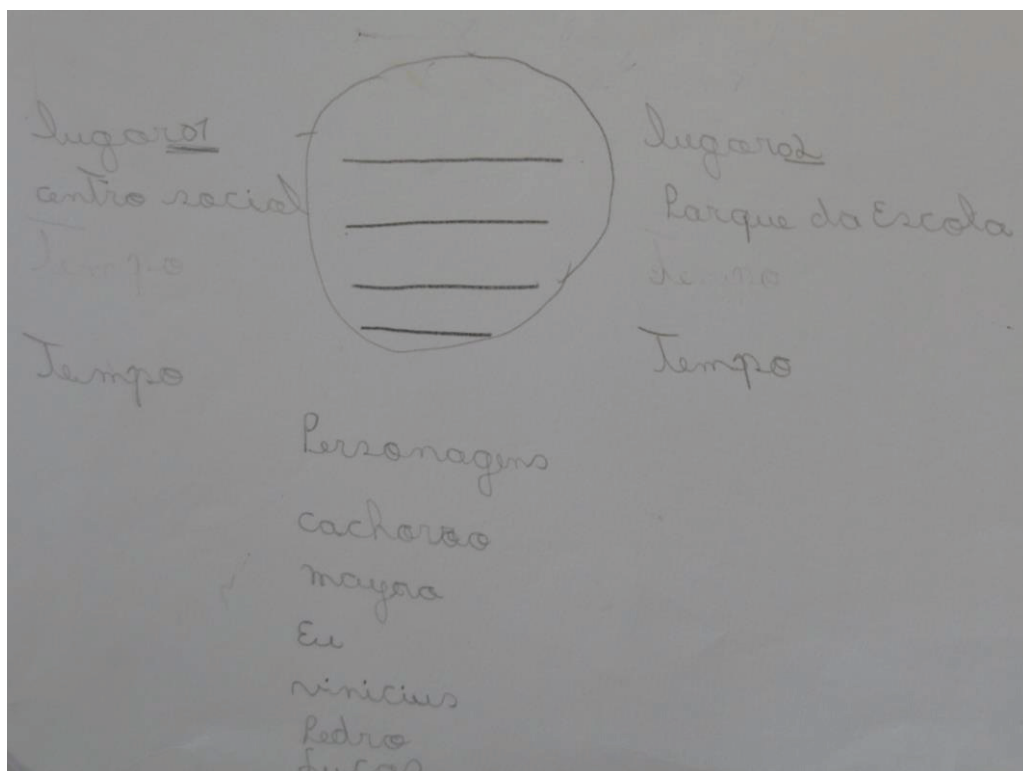 lugar 01
centro social
Tempo
Tempo
lugar 02
Parque da Escola
Tempo
Personagens
cachorro
mayra
Eu
vinicius
Pedro
Lucas